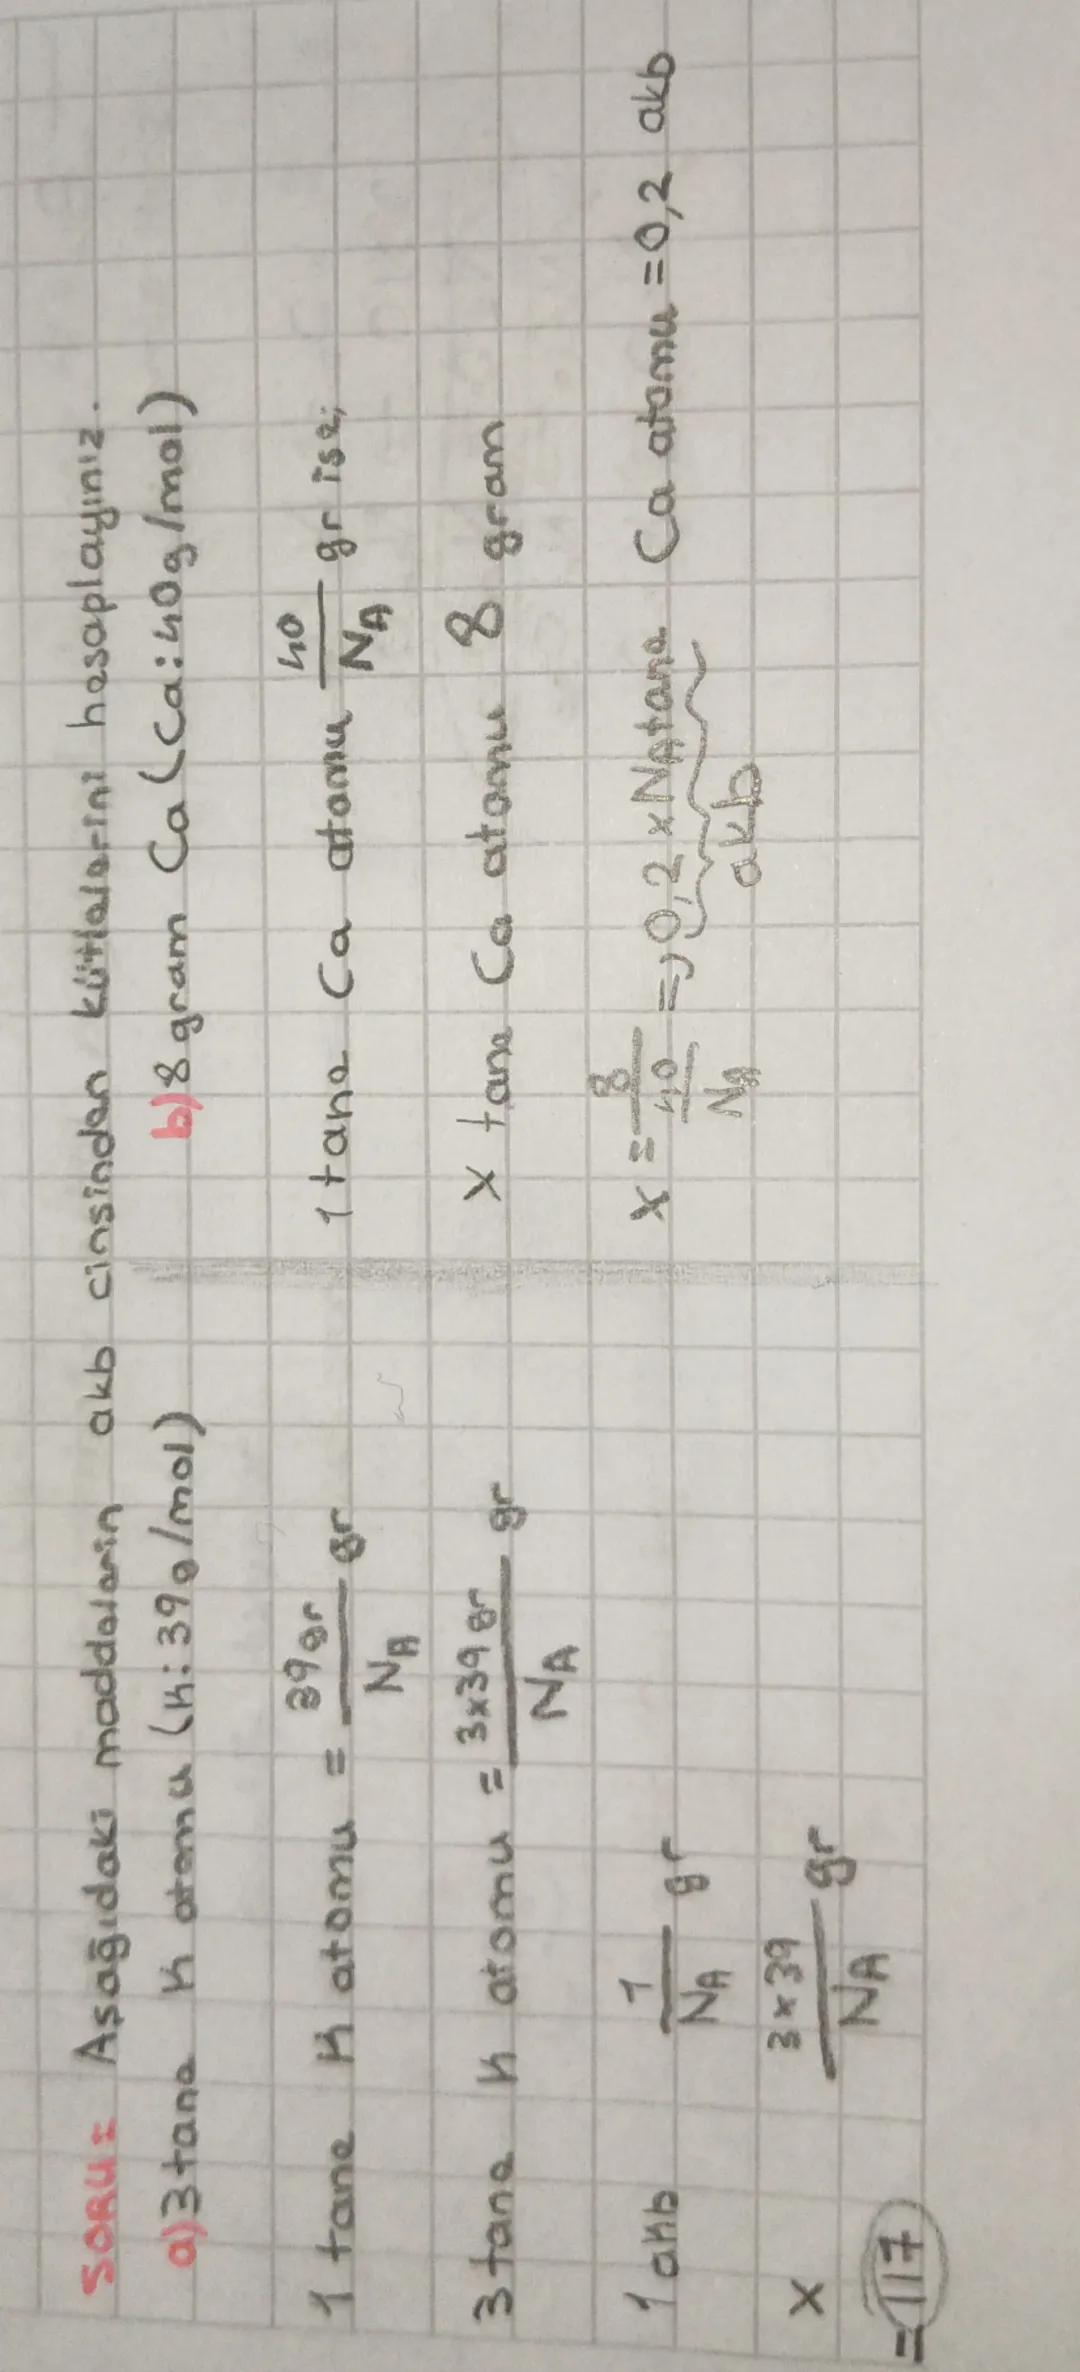 SORU= Aşağıdaki maddelerin akb cinsinden kütlelerini hesaplayınız.
a) 3 tane K atomu (K: 39g/mol)
1 tane K atomu = 39gr/NA gr
3 tane K atomu = 3x39gr/NA gr
1 akb 1/NA gr
x 3x39/NA gr
= 117
b) 8 gram Ca (Ca: 40g/mol)
1 tane Ca atomu 40/NA gr ise;
x tane Ca atomu 8 gram
x = 8/40/NA => 0,2 x NA tane Ca atomu = 0,2 akb
akb